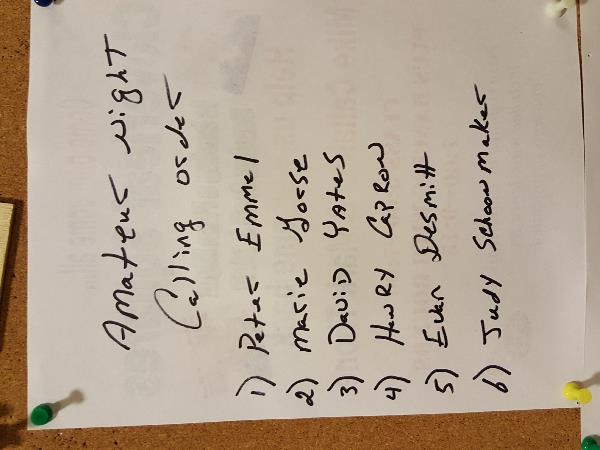 Amateur Night
Calling order
1) Peter Emmel
2) Marie
3) David Yates
4) Henry Capron
5) Evan Desmitt
6) Judy Schoonmaker